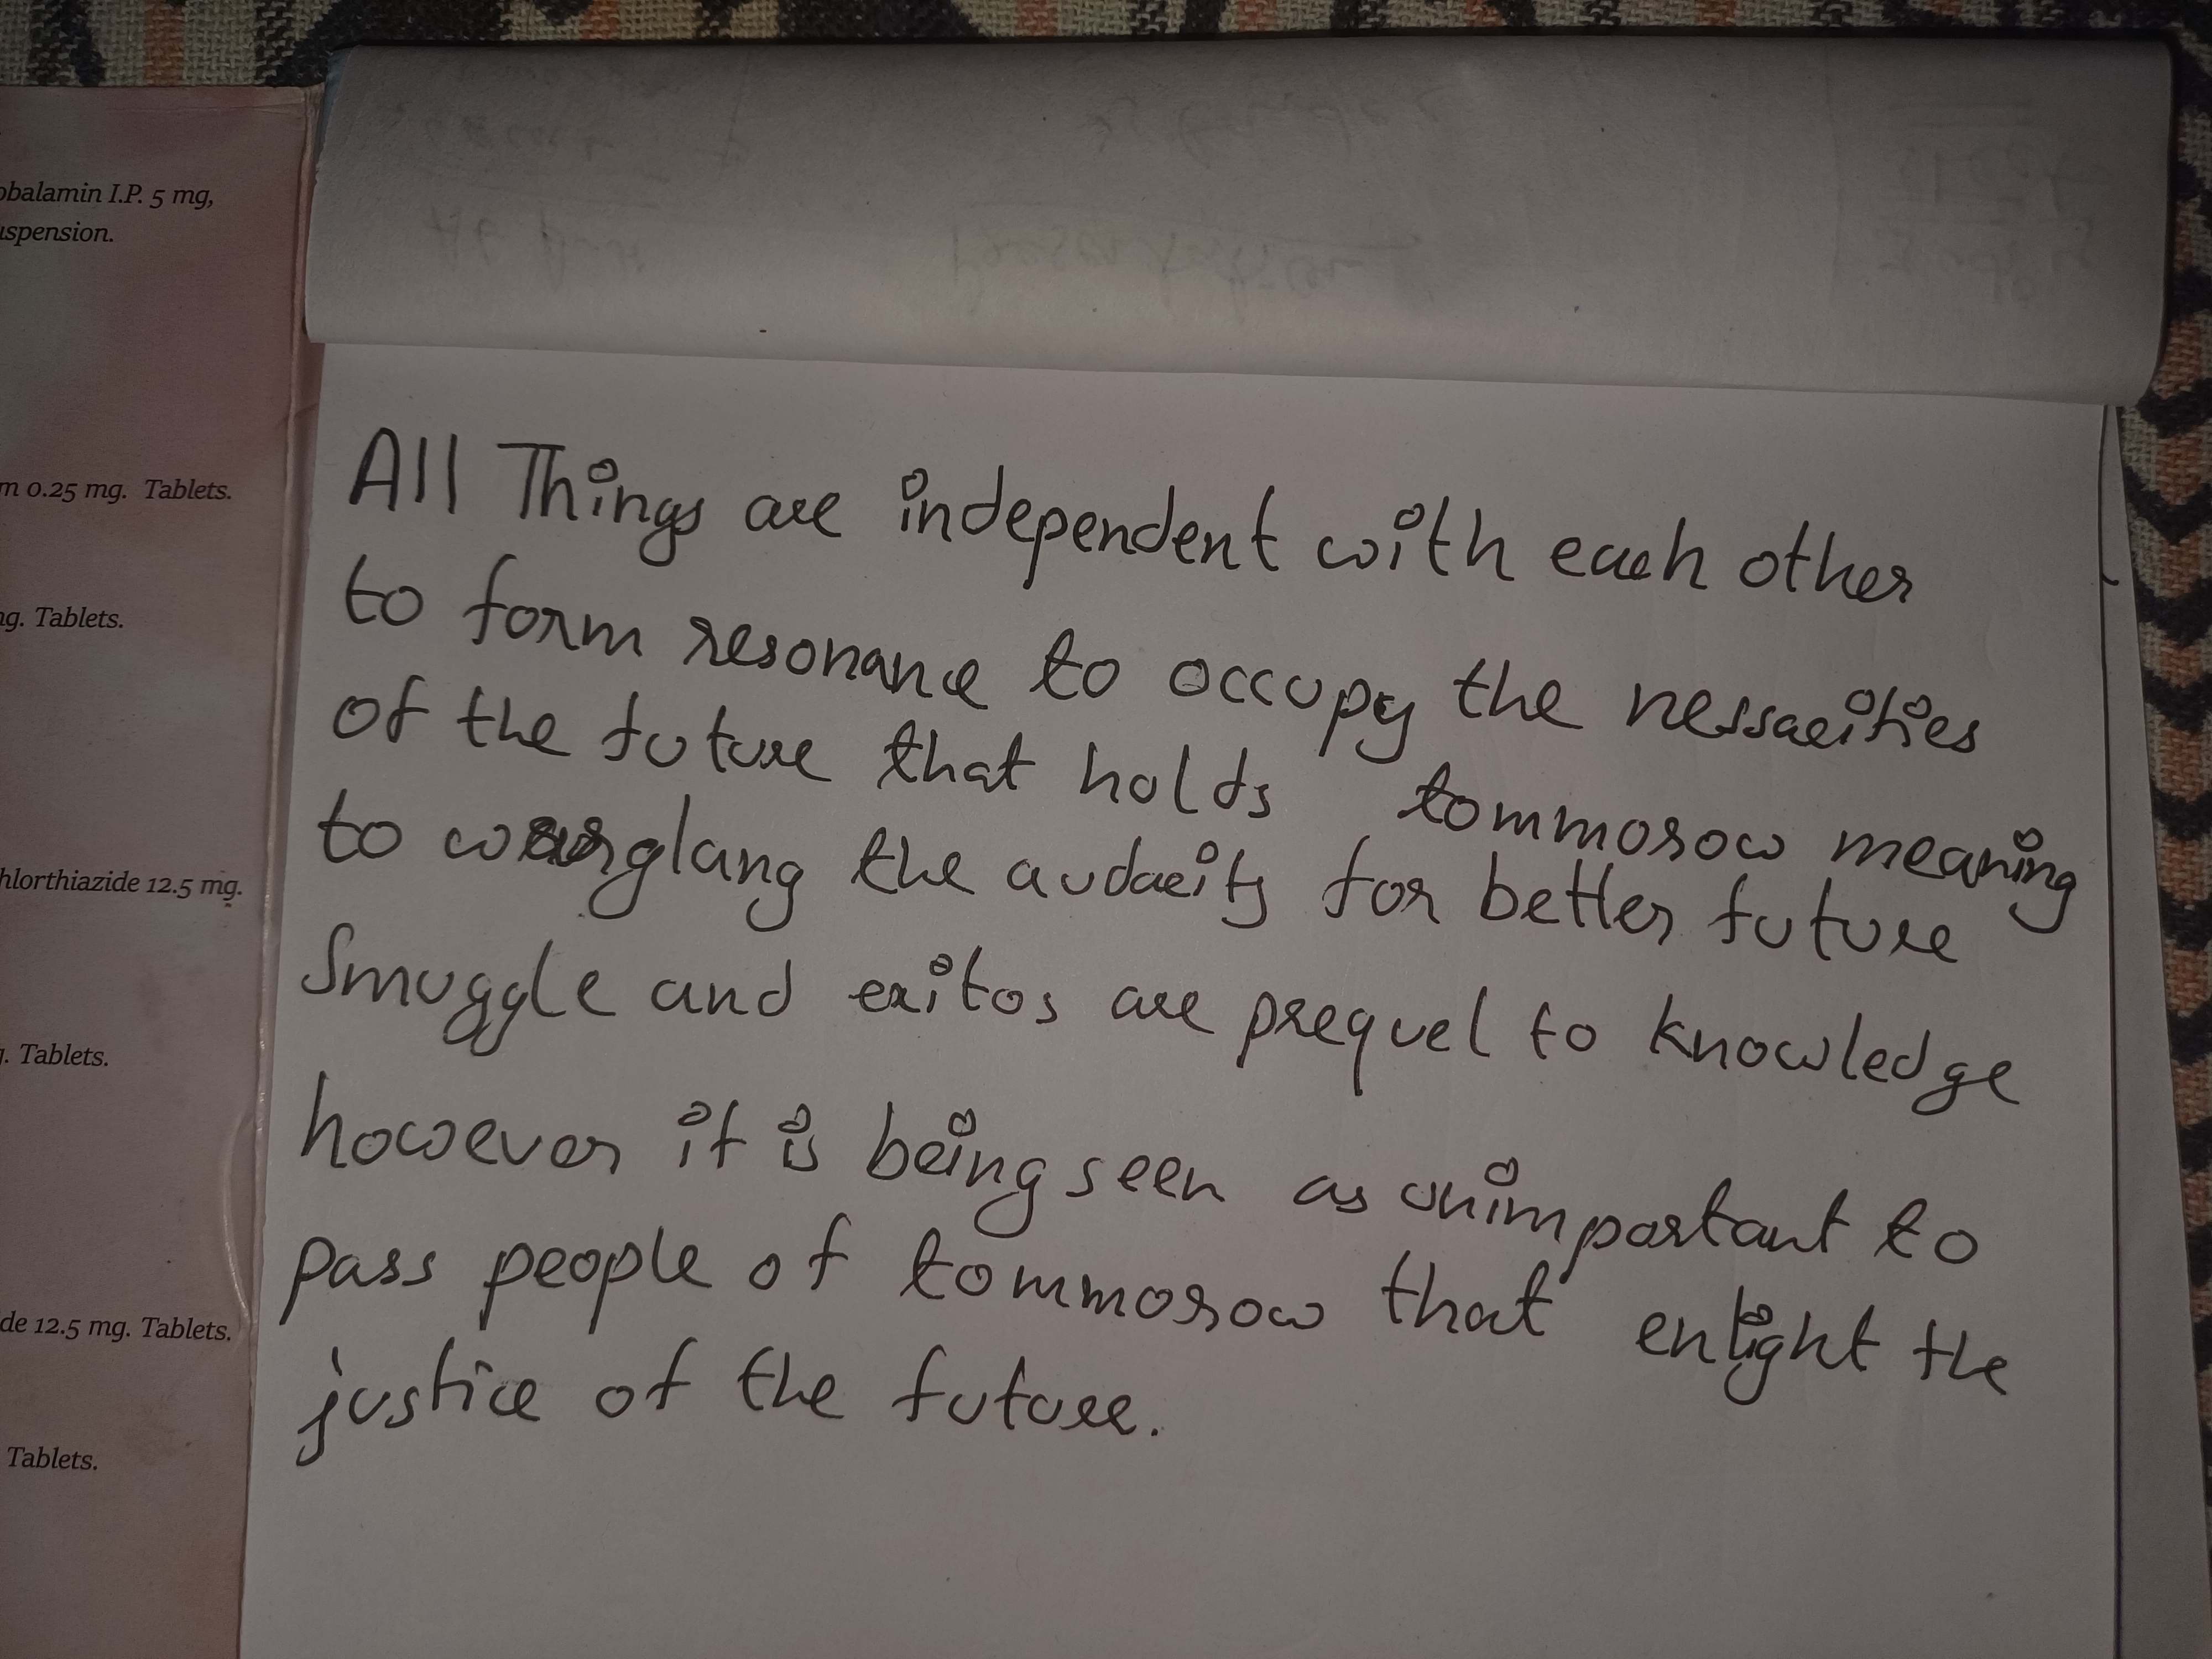 obalamin I.P. 5 mg,
uspension.
m 0.25 mg. Tablets.
ng. Tablets.
hlorthiazide 12.5 mg.
g. Tablets.
de 12.5 mg. Tablets.
Tablets.
All Things are independent with each other
to form resonance to occupy the nessaeities
of the future that holds tommorow meaning
to the audacity for better future
Smuggle and exitos are prequel to knowledge
however it is being seen as unimportant to
pass people of tommorow that enlight the
justice of the future.